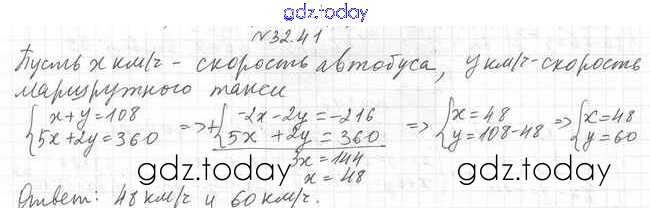 gdz.today
№32.41
Пусть x км/ч - скорость автобуса, y км/ч - скорость
маршрутного такси
{x+y=108 {-2x-2y=-216 {x=48 {x=48
{5x+2y=360 =>+ {5x+2y=360 => {y=108-48 => {y=60
3x=144
x=48
gdz.today gdz.today
Ответ: 48 км/ч и 60 км/ч.